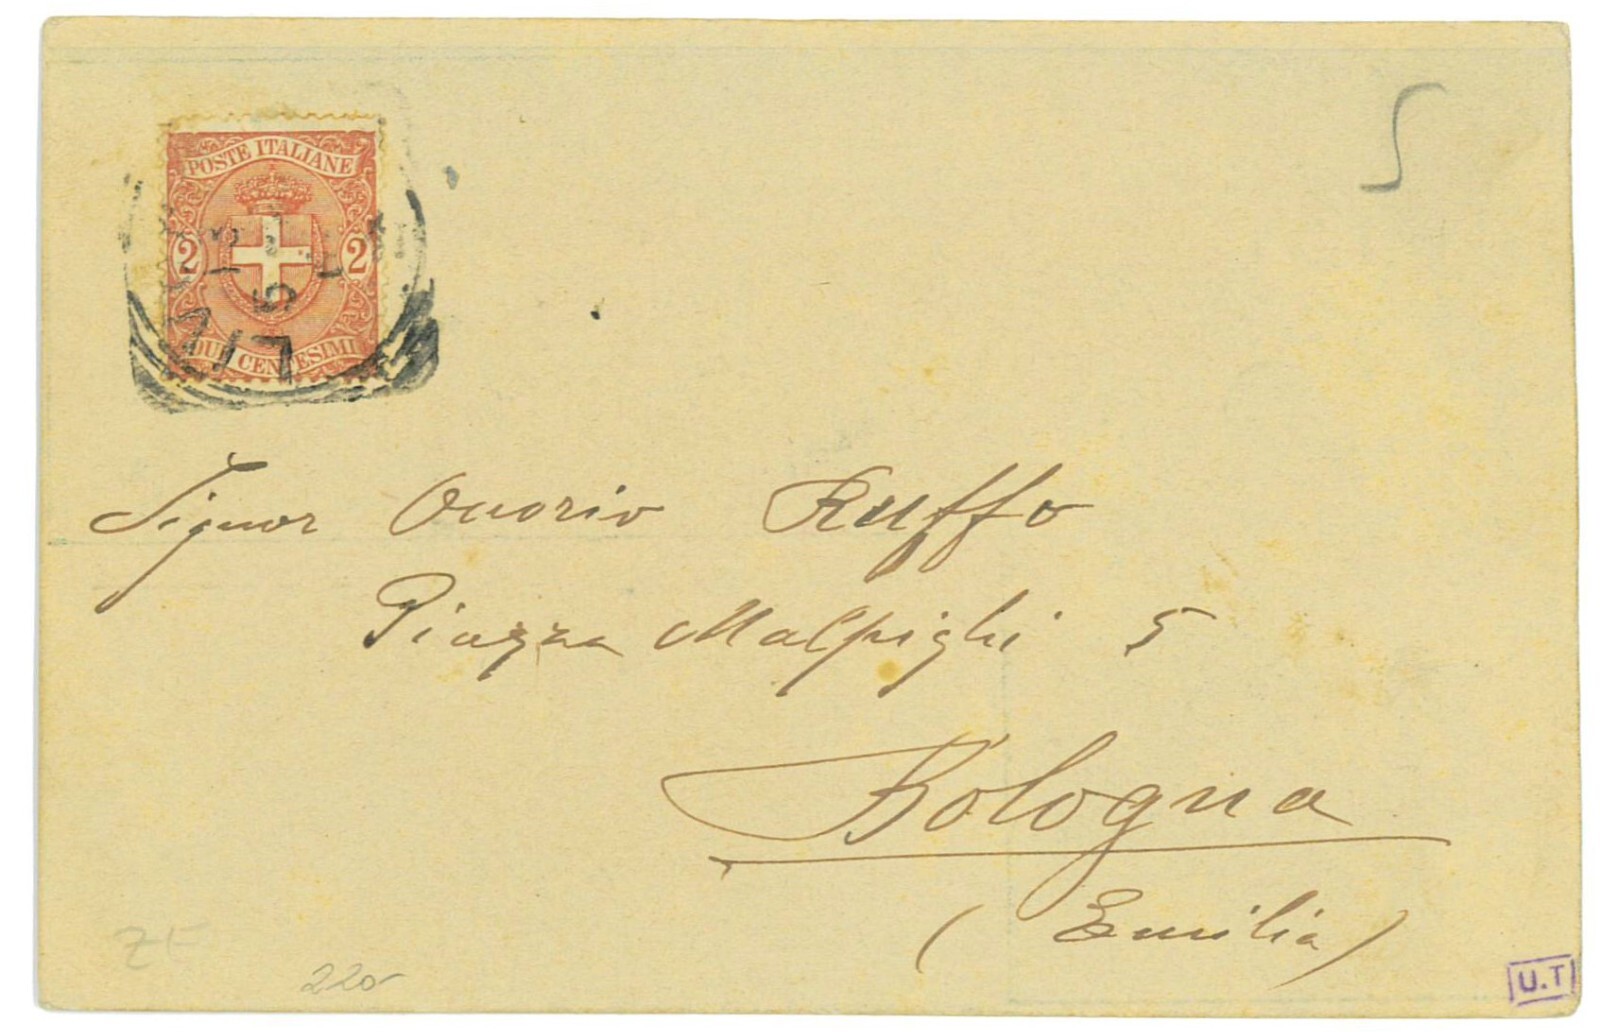 POSTE ITALIANE
2 2
DUE CENTESIMI
5
Signor Onorio Ruffo
Piazza Malpighi 5
Bologna
(Emilia)
220
U.T